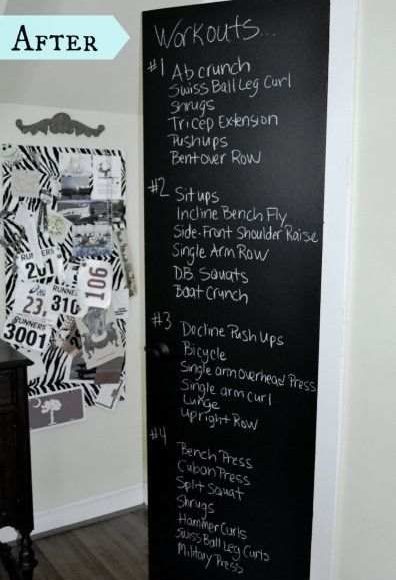 AFTER
Workouts...
#1 Ab crunch
Swiss Ball Leg Curl
Shrugs
Tricep Extension
Pushups
Bent over Row
#2 Sit ups
Incline Bench Fly
Side-Front Shoulder Raise
Single Arm Row
DB Squats
Boat Crunch
#3 Decline Push Ups
Bicycle
Single arm overhead Press
Single arm curl
Lunge
Upright Row
#4 Bench Press
Cuban Press
Split Squat
Shrugs
Hammer Curls
Swiss Ball Leg Curls
Military Press
201
106
23,
310
RUNNERS
3001